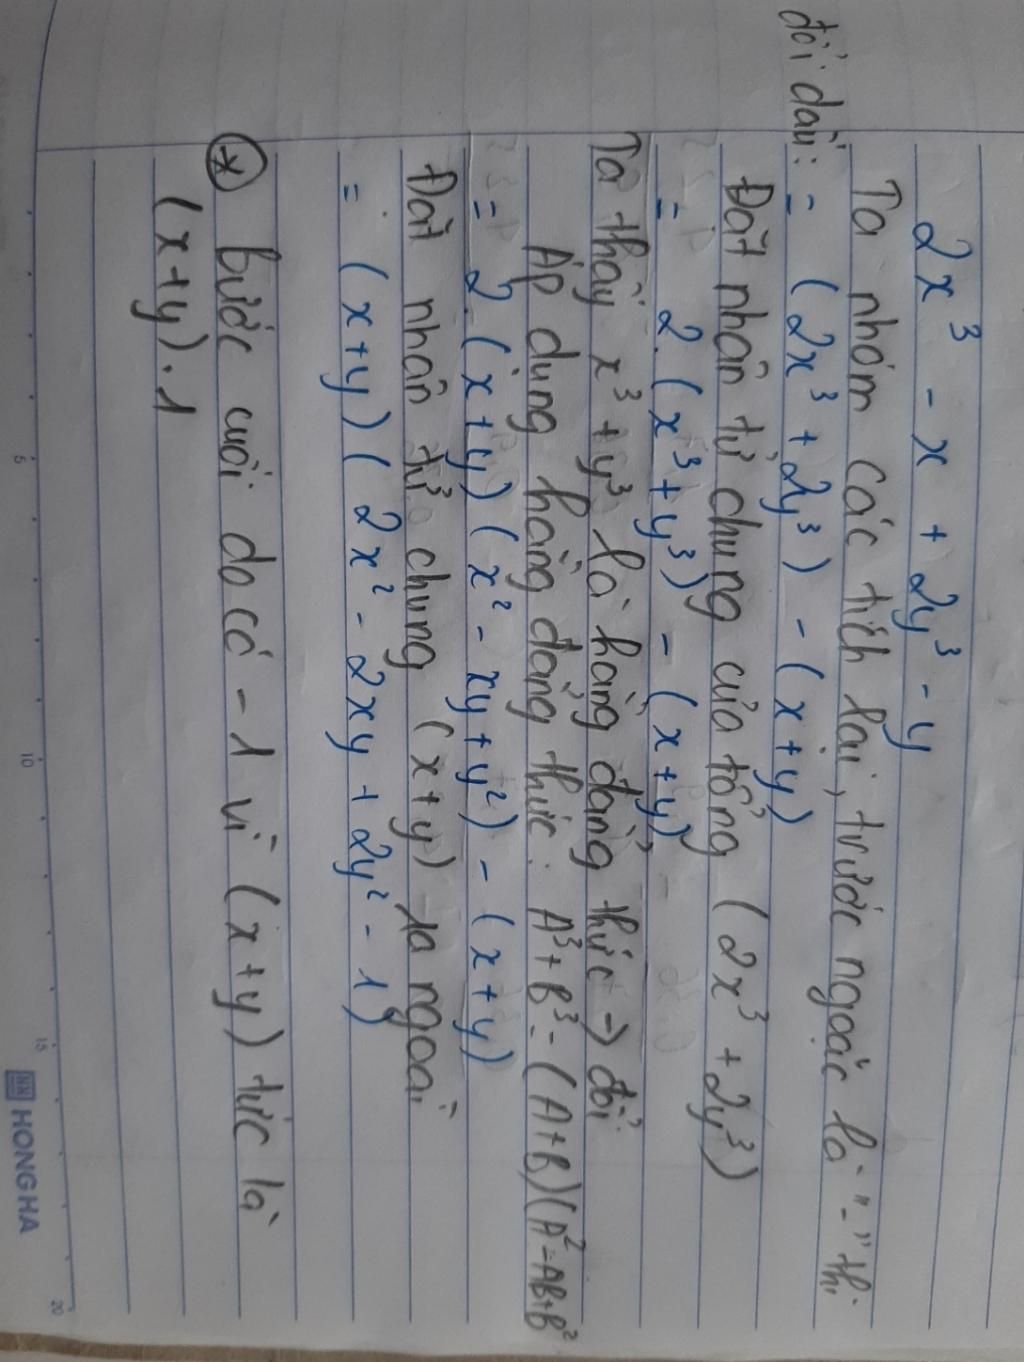 2x³ - x + 2y³ - y
Ta nhóm các tích lại, trước ngoặc là "-" thì
đổi dấu: = (2x³ + 2y³) - (x+y)
Đặt nhân tử chung của tổng (2x³ + 2y³)
= 2.(x³+y³) - (x+y)
Ta thấy x³ + y³ là hằng đẳng thức → đổi
Áp dụng hằng đẳng thức: A³+B³ = (A+B)(A²-AB+B²
= 2.(x+y)(x² - xy + y²) - (x+y)
Đặt nhân tử chung (x+y) ra ngoài
= (x+y)(2x² - 2xy + 2y² - 1)
* bước cuối do có -1 vì (x+y) tức là
(x+y).1
5 10 15 20
HONG HA